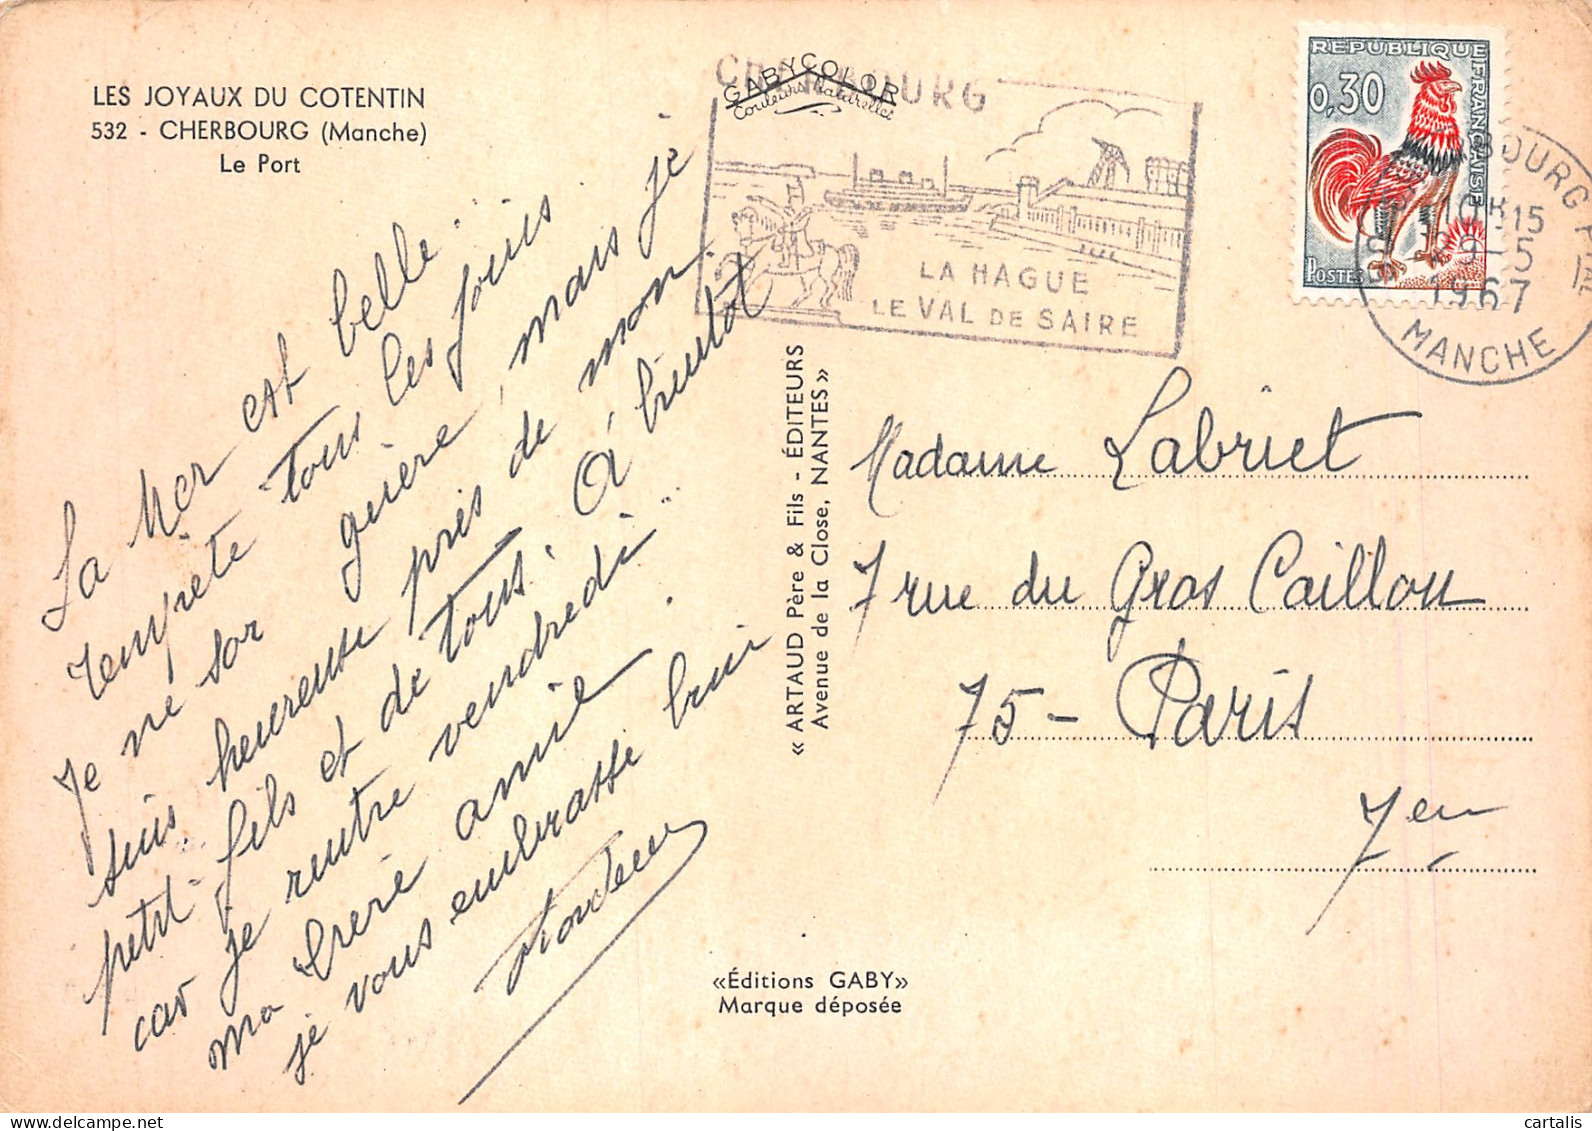 LES JOYAUX DU COTENTIN
532 - CHERBOURG (Manche)
Le Port
GABYCOLOR
Couleurs Naturelles
CHERBOURG
LA HAGUE
LE VAL DE SAIRE
REPUBLIQUE FRANÇAISE
0,30
POSTES
CHERBOURG
15
9-5
1967
MANCHE
La Mer est belle.
tempête tous les jours
Je ne sor guère, mais je
suis heureuse près de mon
petit-fils et de tous. A bientôt
car je rentre vendredi..
ma chère amie.
je vous embrasse bien
« ARTAUD Père & Fils - ÉDITEURS
Avenue de la Close, NANTES »
Madame Labriet
7 rue du Gros Caillou
75 - Paris
7en
«Éditions GABY»
Marque déposée
cartalis